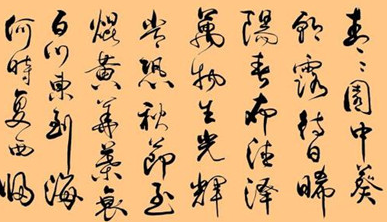 青々園中葵
朝露待日晞
陽春布德澤
萬物生光輝
常恐秋節至
焜黄華葉衰
百川東到海
何時复西歸